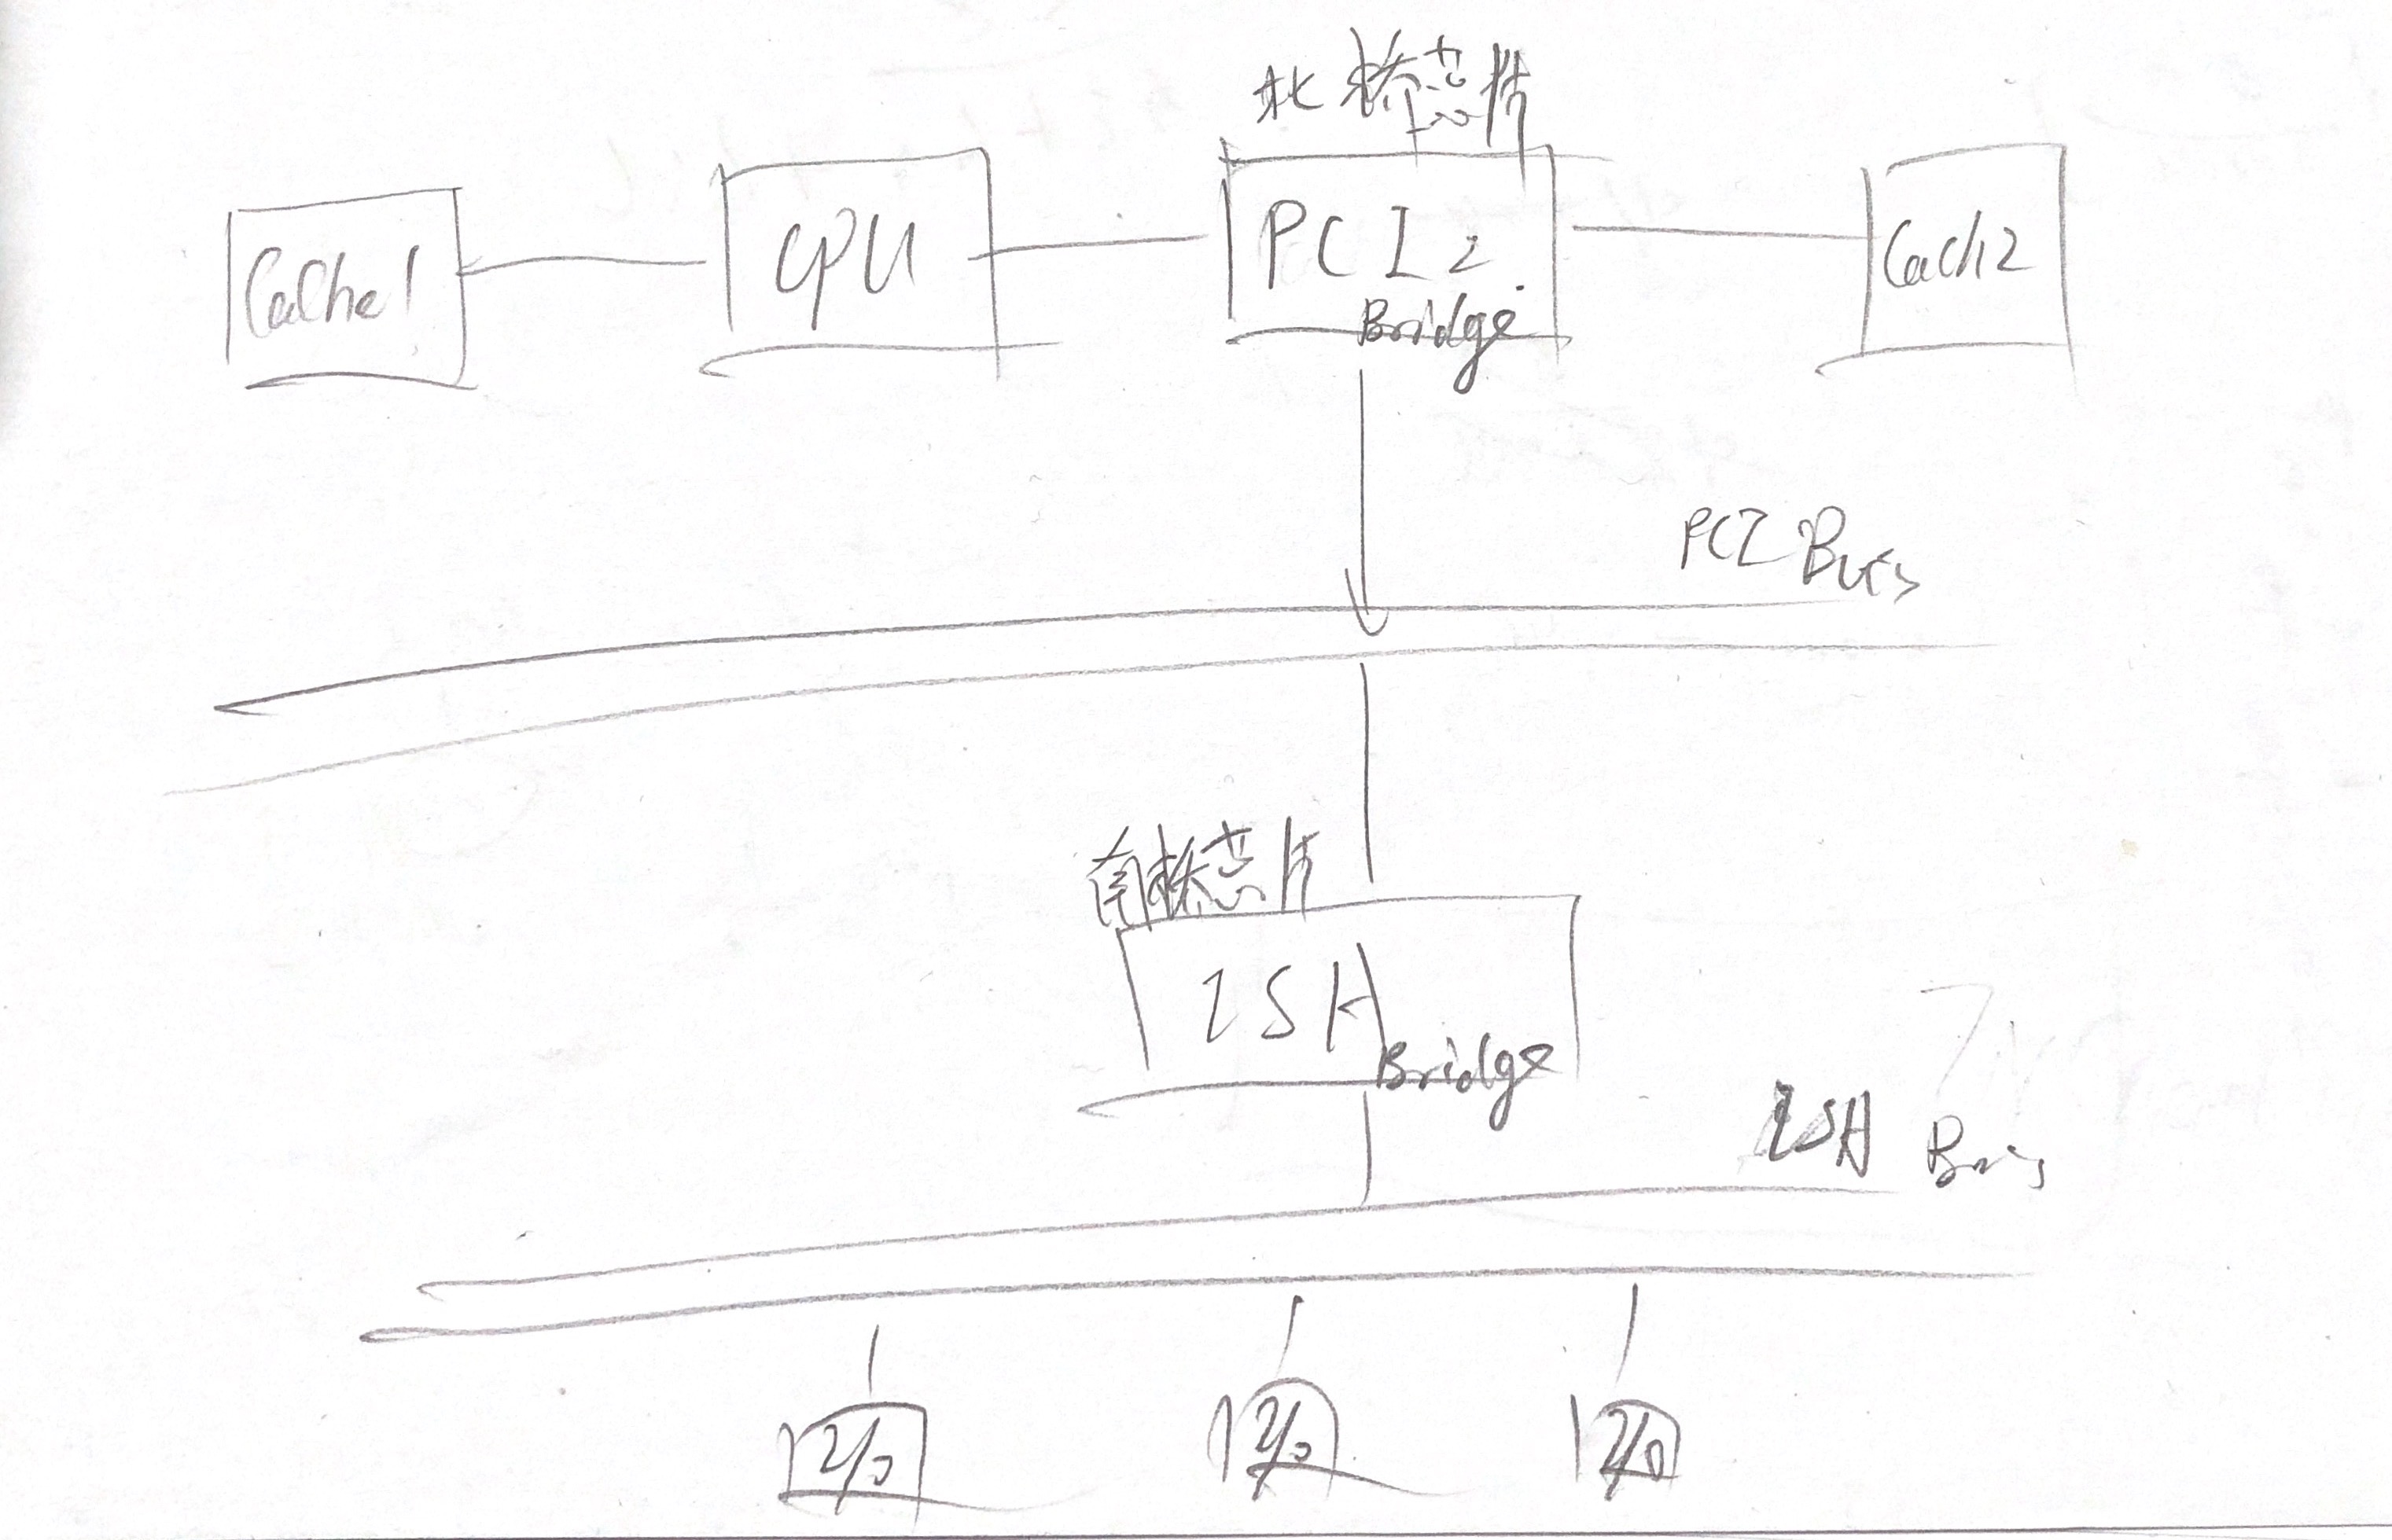 北桥芯片
Cache1
CPU
PCI 2
Bridge
Cach2
PCI Bus
南桥芯片
ISA
Bridge
ISA Bus
I/O
I/O
I/O